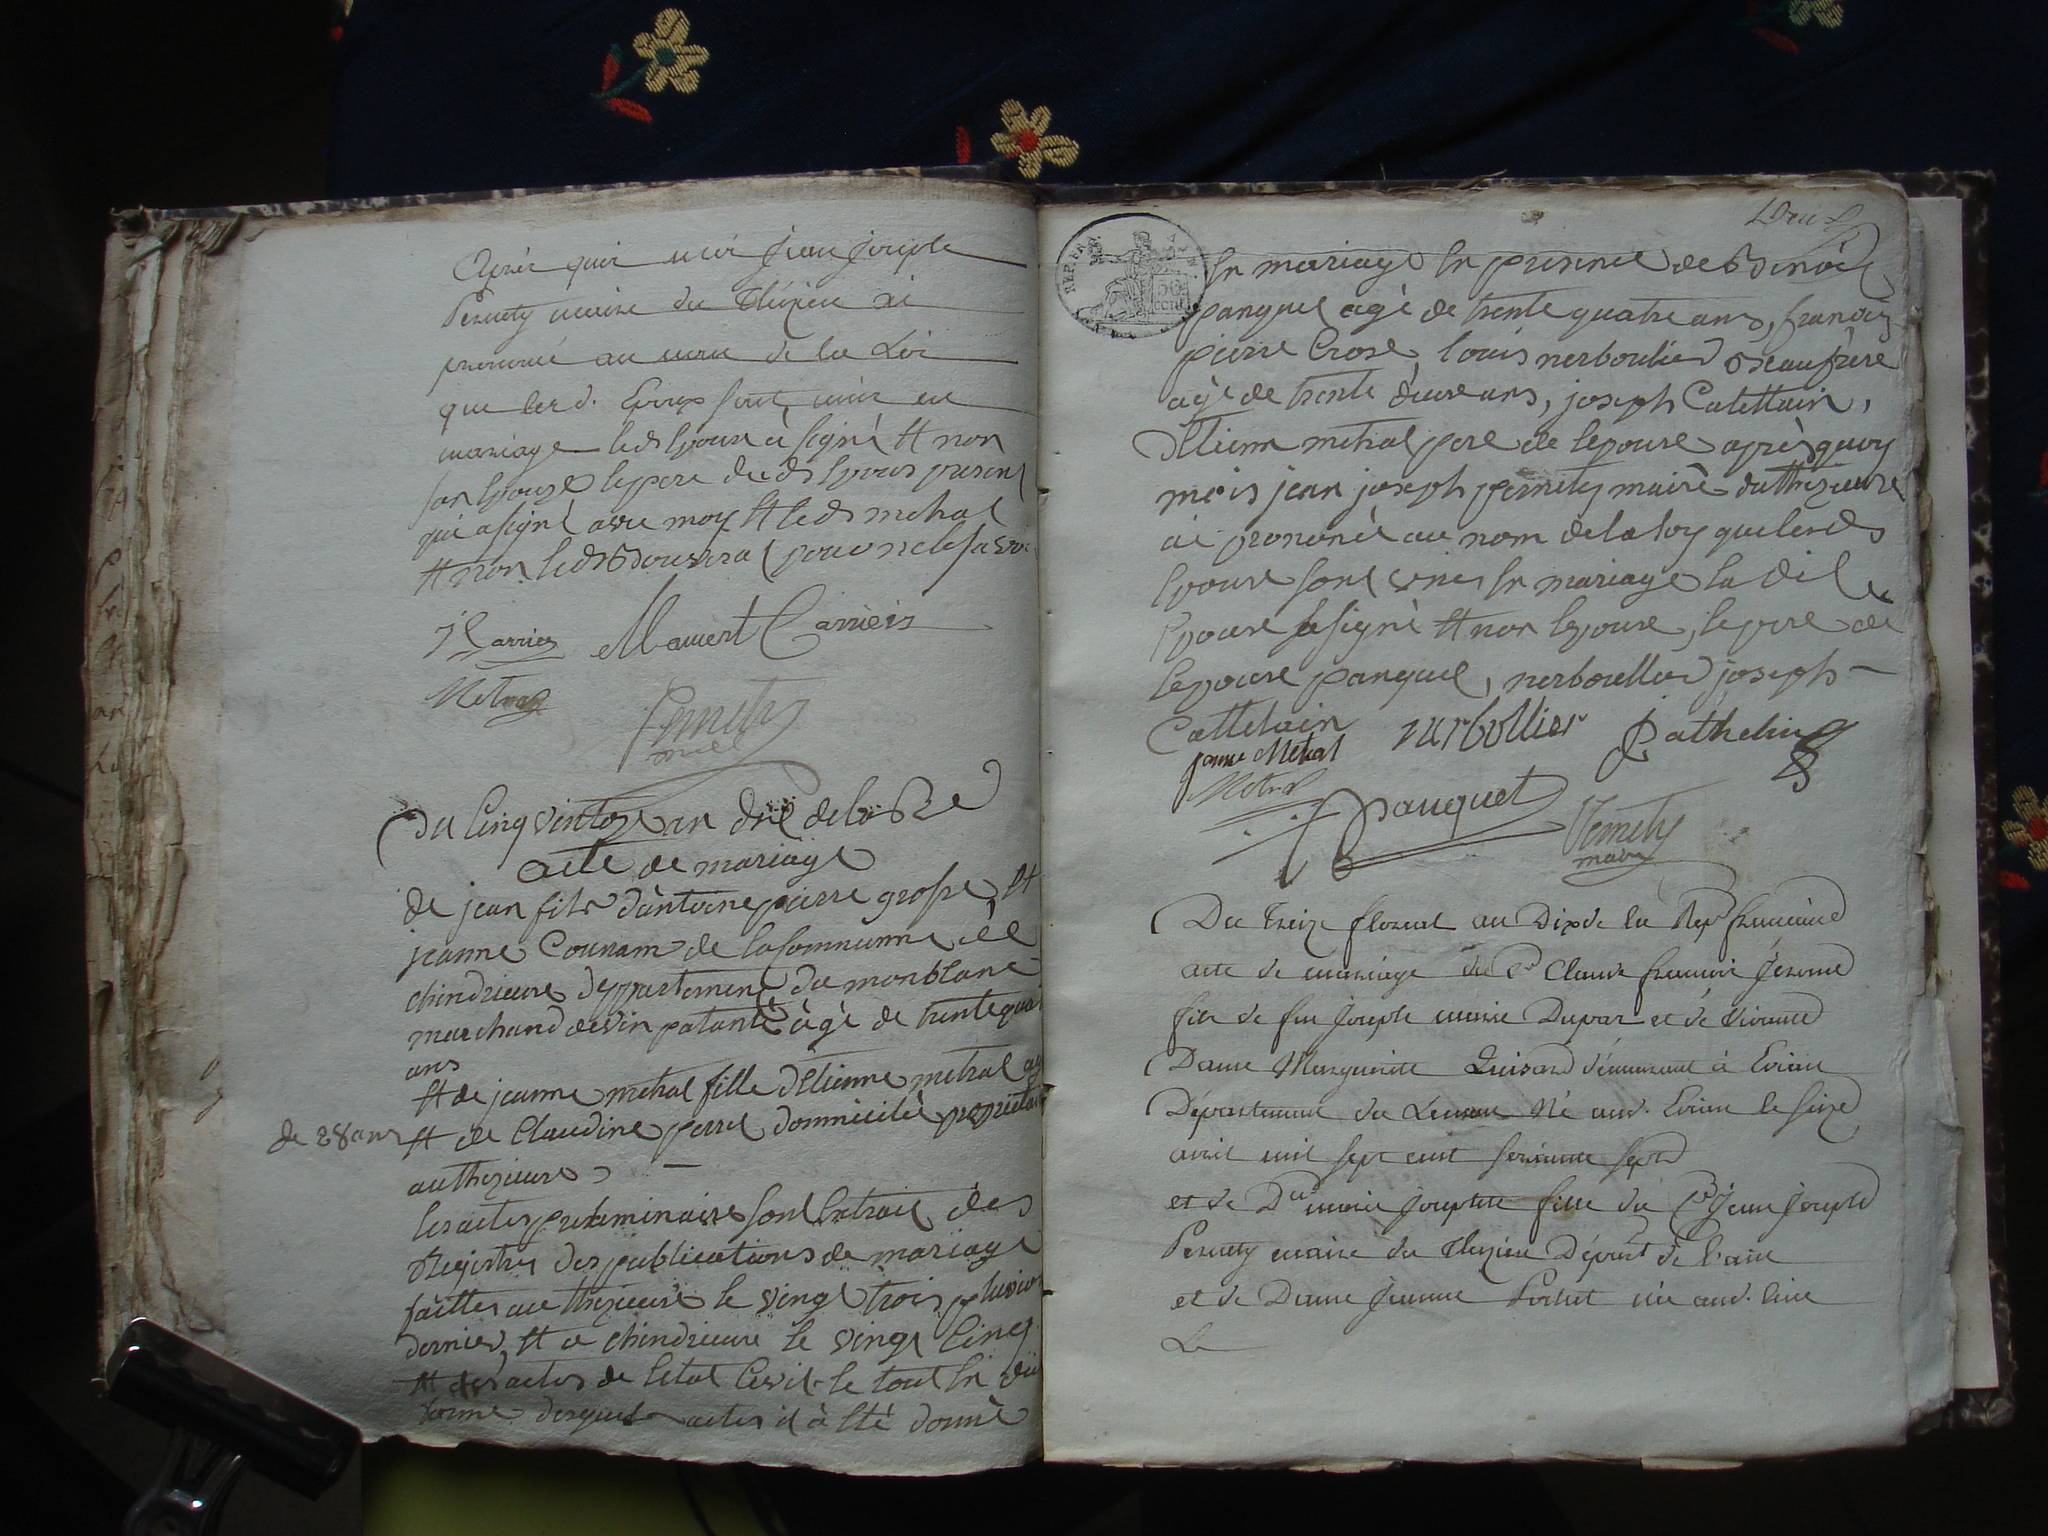 Après quoi moi Jean Joseph
Pernety maire du Thézieu ai
prononcé au nom de la Loi
que lesd. Epoux sont unis en
mariage ledt Epoux a signé et non
son Epouse le pere dedt Epoux present
qui a signé avec moy et ledt metral
et non ledt pour ne le savoir
Carrier
Metral
Pernety
Du Cinq ventose an dix de la Re
acte de mariage
de jean fils d'antoine pierre grosse et
jeanne Counam de la Commune de
chindrieux deppartement du monblanc
marchand de vin patanté àgé de trente quat
ans
et de jeanne metral fille d'Etienne metral ag
de 28 ans
et de Claudine perret domicilié proprietair
au thezieure
les actes preliminaires sont Extrait des
Registres des publications de mariage
faittes au thezieure le vingt trois pluvio
dernier, et a chindrieure le vingt Cinq
et des actes de letat Civil le tout En düe
forme desquels actes il à Eté donné
En mariage En presence de Benoit
panquet agé de trente quatre ans, francois
pierre Crose, louis nerboulier Beaufrere
agé de trente deux ans, joseph Catettain,
d'Etienne metral pere de lepouse après quoy
mois jean joseph pernety maire du thezieure
ai prononcé au nom de la loy que lesdts
Epoux sont unis En mariage la dite
Epouse a signé et non lepoux, le pere de
lepouse panquet, nerboullier joseph
Cattelain
janne Metral
narbollier
Pathelin
Metral
Pauquet
Pernety
maire
Du treize floreal an Dix de la Rep francaise
acte de mariage du Cn Claude francois Jerome
fils de feu Joseph marie Dupraz et de vivante
Dame Marguerite Quisard demeurant à Evian
Département du Leman Né aud. Evian le seize
avril mil sept cent soixante sept
et de Dlle marie Josephte fille du Cn Jean Joseph
Pernety maire du Thezieu Départ de l'ain
et de Dame Jeanne Pochet née aud. lieu
Le